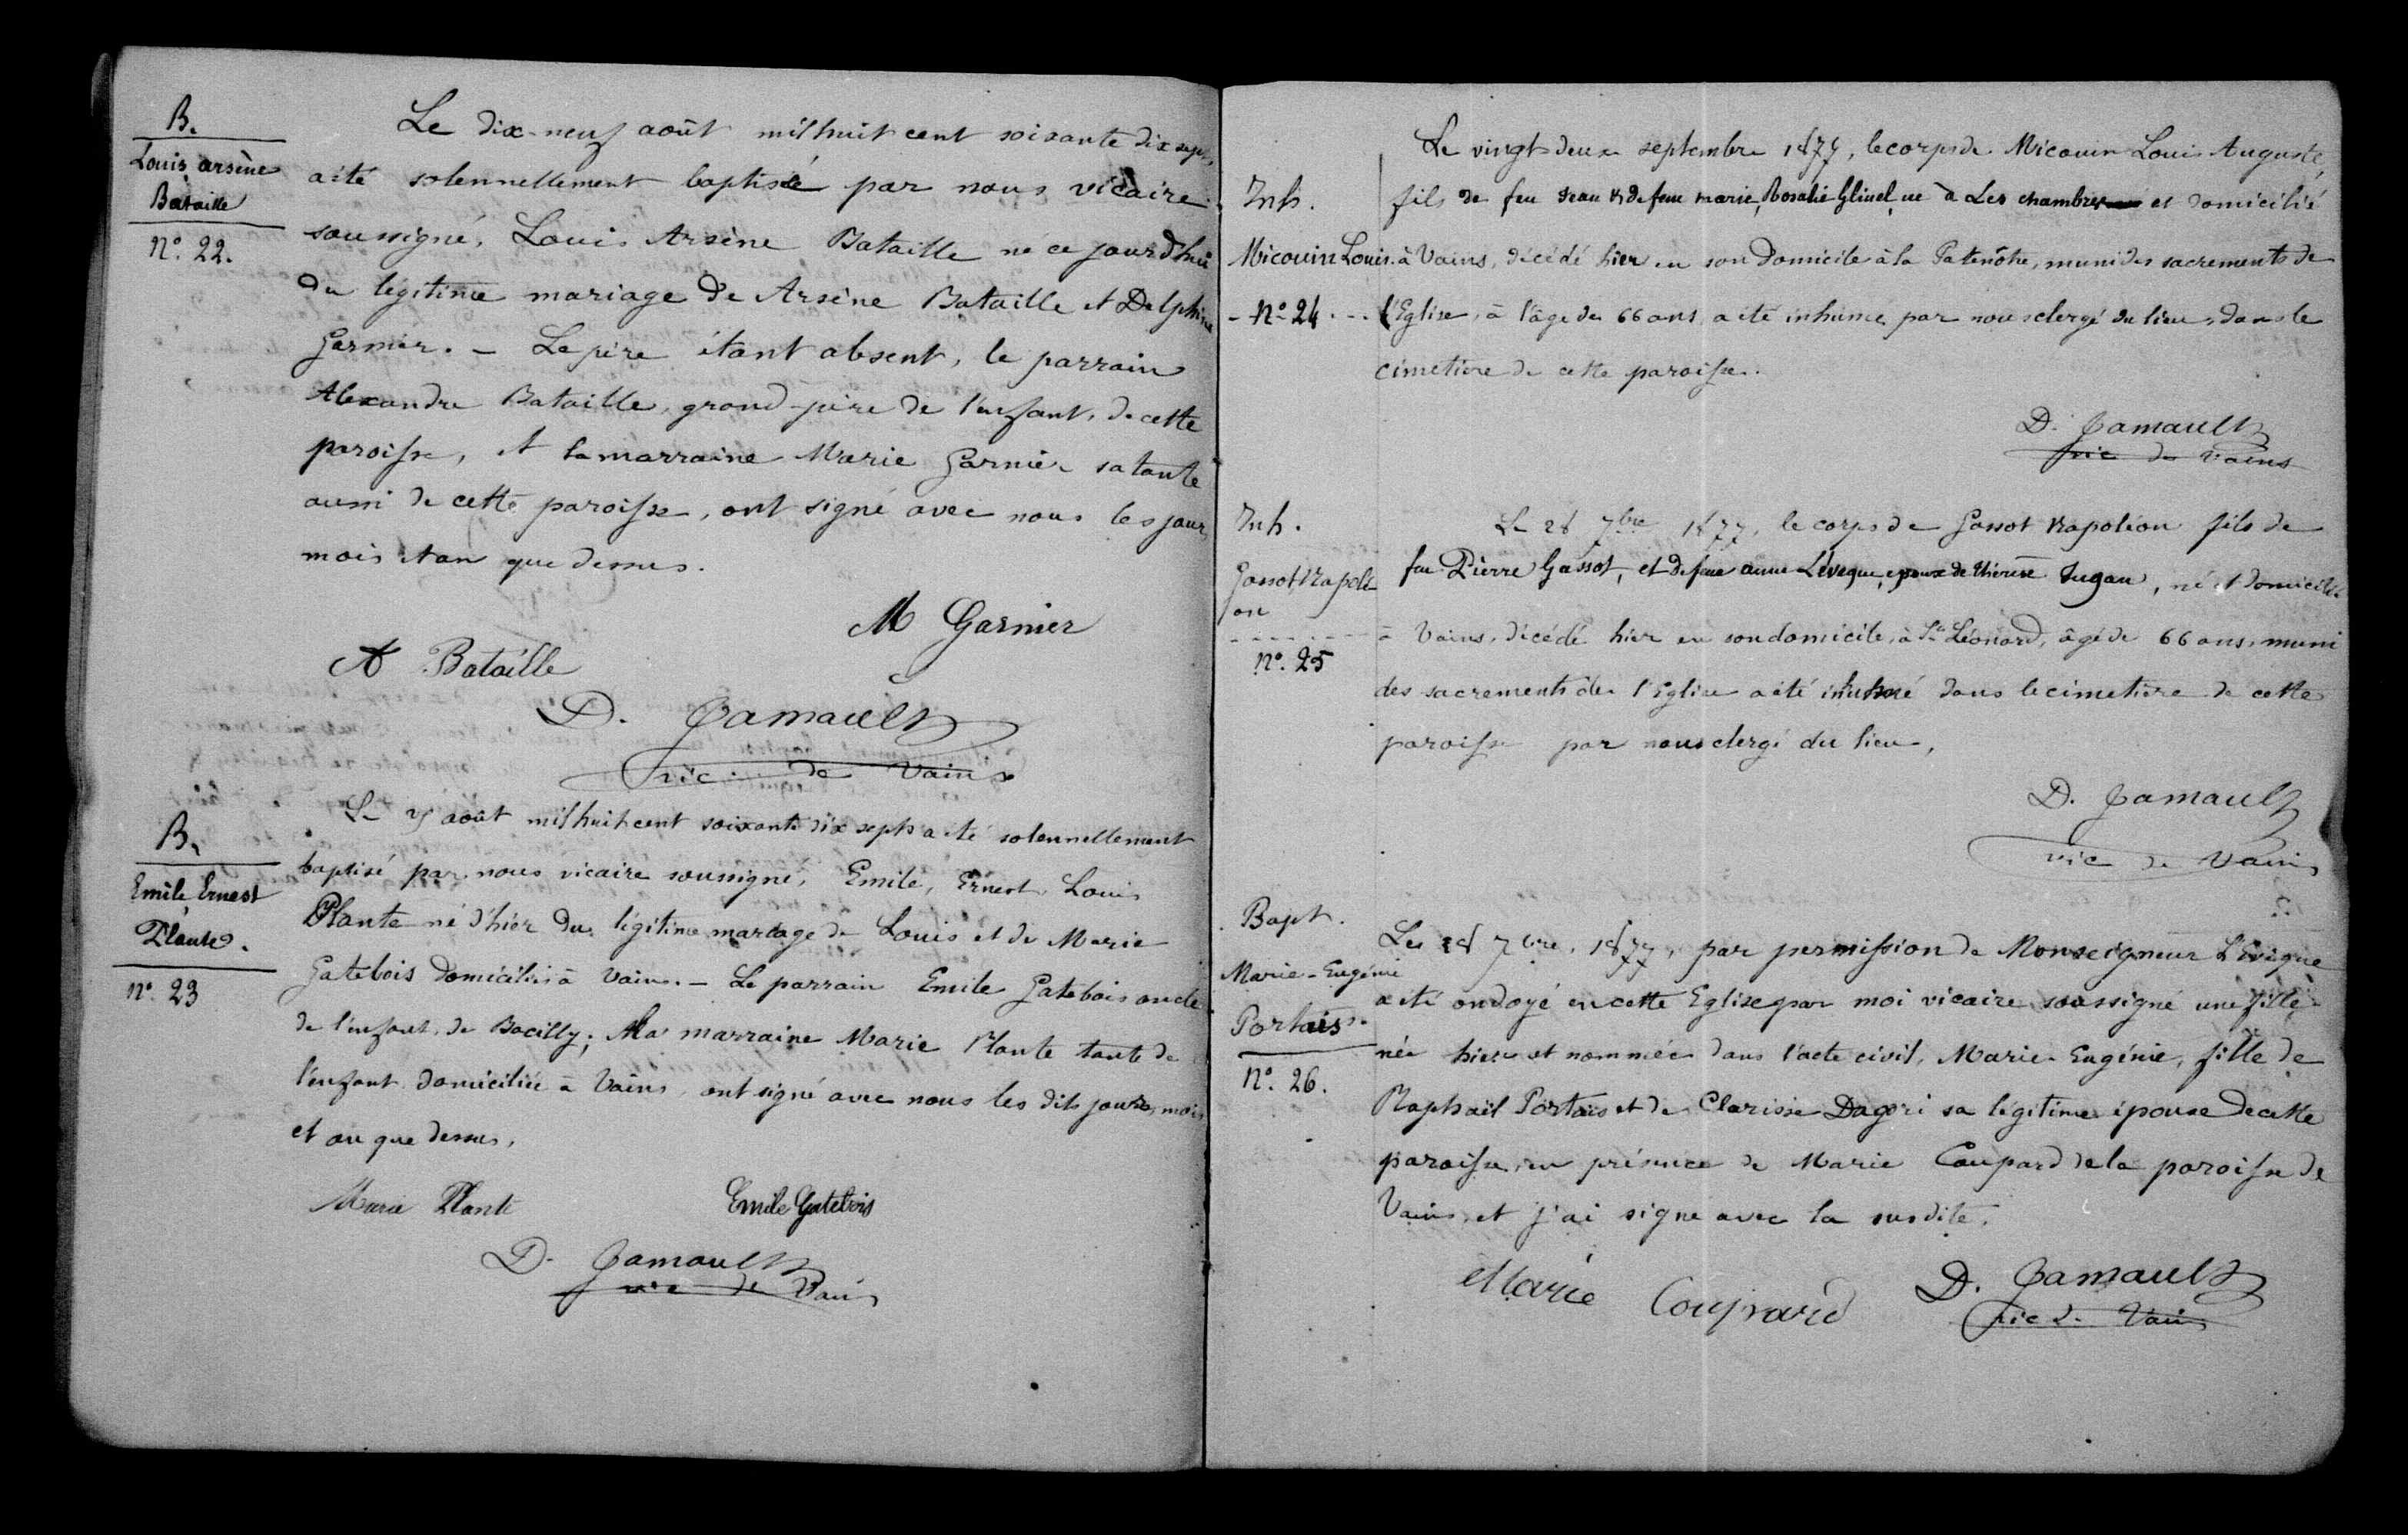 B.
Louis arsène
Bataille
N° 22.
Le dix-neuf août mil huit cent soixante dix sept,
a été solennellement baptisé par nous vicaire
soussigné, Louis Arsène Bataille né ce jourd'hui
du légitime mariage de Arsène Bataille et Delphine
Garnier. – Le père étant absent, le parrain
Alexandre Bataille, grand-père de l'enfant, de cette
paroisse, et la marraine Marie Garnier sa tante
aussi de cette paroisse, ont signé avec nous les jour,
mois et an que dessus.
M Garnier
A Bataille
D. Jamault
vic. de Vains
B.
Emile Ernest
Plante.
N° 23
Le août mil huit cent soixante dix sept a été solennellement
baptisé par nous vicaire soussigné, Emile, Ernest, Louis
Plante né d'hier du légitime mariage de Louis et de Marie
Gatebois domiciliés à Vains. – Le parrain Emile Gatebois oncle
de l'enfant, de Bacilly; La marraine Marie Plante tante de
l'enfant domiciliée à Vains, ont signé avec nous les dits jours, mois
et an que dessus.
Marie Plante
Emile Gatebois
D. Jamault
vic de Vains
Inh.
Micouin Louis.
N° 24
Le vingt-deux septembre 1877, le corps de Micouin Louis Auguste,
fils de feu Jean & de feue marie, Rosalie Glinel, né à Les chambres et domicilié
à Vains, décédé hier en son domicile à la Patenôtre, muni des sacrements de
l'Eglise, à l'âge de 66 ans a été inhumé par nous clergé du lieu, dans le
cimetière de cette paroisse.
D. Jamault
vic de Vains
Inh.
Gassot, Napolé
on
N° 25
Le 28 7bre 1877, le corps de Gassot Napoléon fils de
feu Pierre Gassot, et de feue anne Lévêque, époux de thérèse Jugan, né et domicilié
à Vains, décédé hier en son domicile, à St Léonard, âgé de 66 ans, muni
des sacrements de l'Eglise a été inhumé dans le cimetière de cette
paroisse par nous clergé du lieu,
D. Jamault
vic de Vains
Bapt.
Marie-Eugénie
Portais.
N° 26.
Le 28 7bre, 1877, par permission de Monseigneur L'Evêque
a été ondoyé en cette Eglise par moi vicaire soussigné une fille
née hier et nommée dans l'acte civil, Marie-Eugénie, fille de
Raphaël Portais et de Clarisse Dagori sa légitime épouse de cette
paroisse, en présence de Marie Coupard de la paroisse de
Vains, et j'ai signé avec la susdite.
Marie Couprard
D. Jamault
vic de Vains